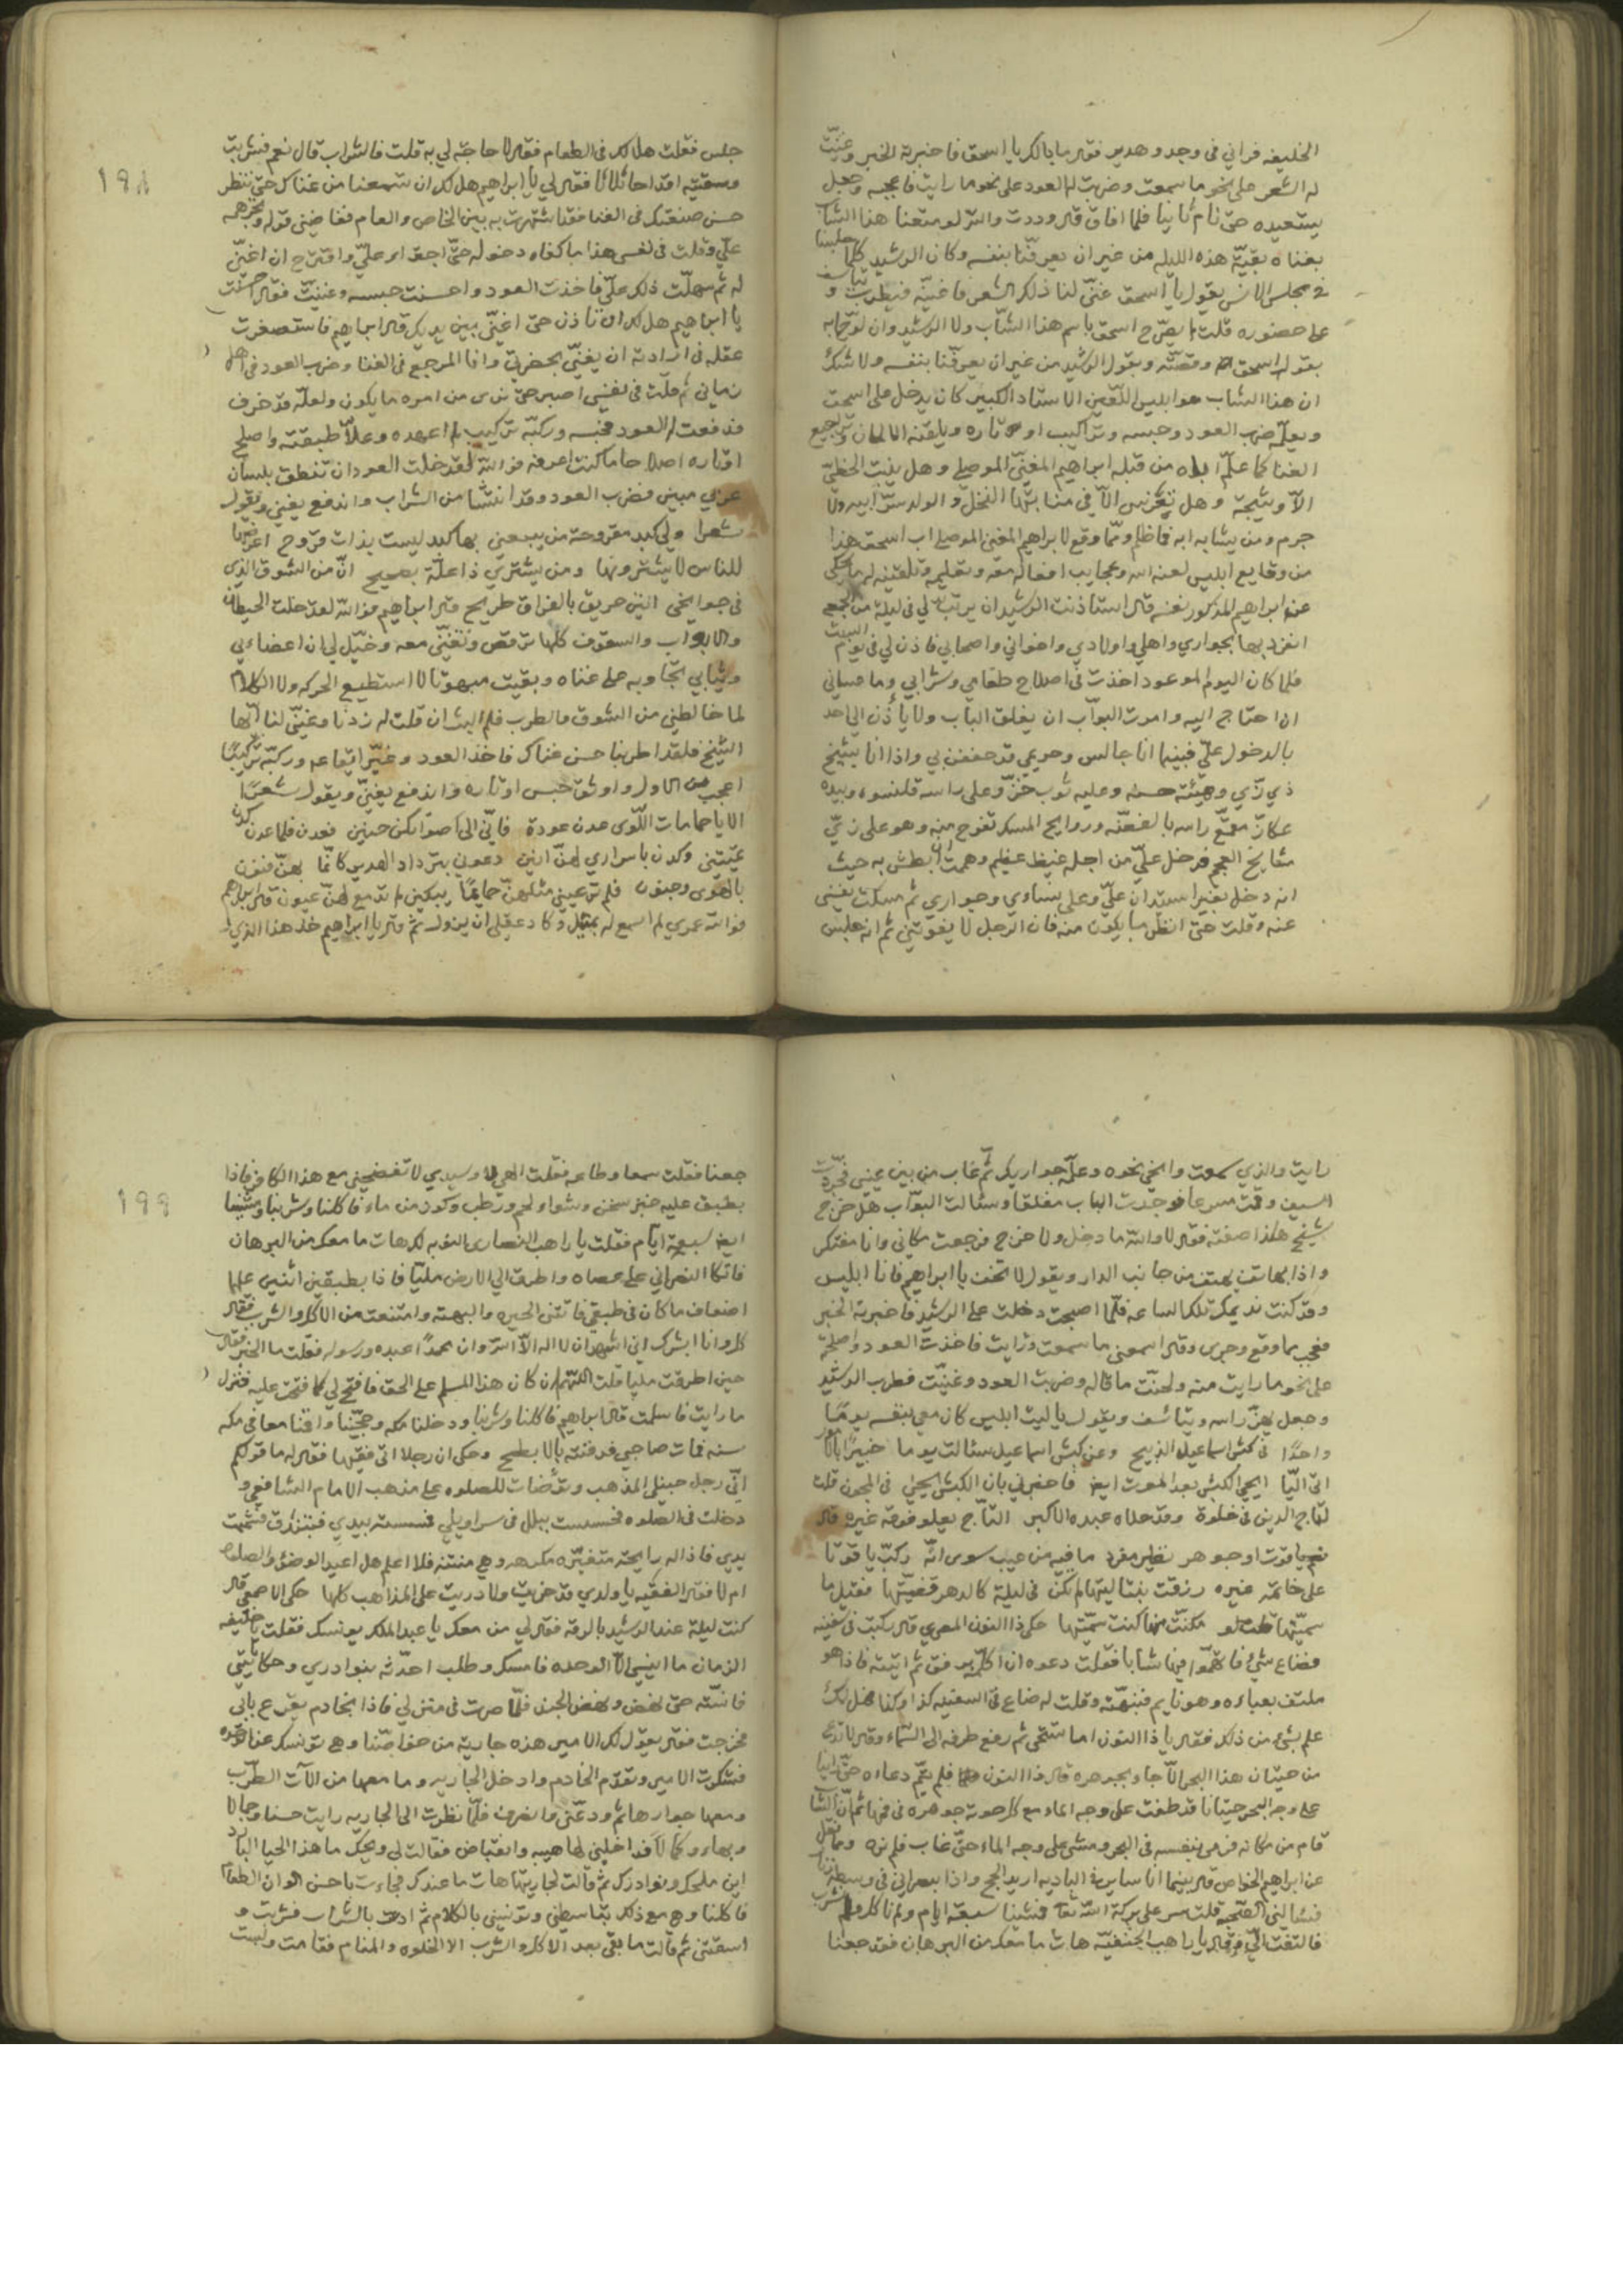 الخليفه فراني في وجد وهدس فقال ما بالك يا اسحق فاخبرته الخبر وغنيّت
له الشعر على نحو ما سمعت وضربت له العود على نحو ما رايت فاعجبه وجعل
يستعيده حتى نام ثانيا فلما افاق قال وددت والله لو متعنا هذا الشاب
بغناه بقيّة هذه الليله من غير ان يعرفنا بنفسه وكان الرشيد كلما جلسنا
في مجلس الانس يقول يا اسحق غنّي لنا ذلك الشعر فاغنيه فيطرب و يتاسف
على حضوره قلت لم يصرح اسحق باسم هذا الشاب ولا الرشيد وان لوّحا به
بقول اسحق وقصّته وبقول الرشيد من غير ان يعرفنا بنفسه ولا شك
ان هذا الشاب هو ابليس اللعين الاستاد الكبير كان يدخل على اسحق
ويعلّه ضرب العود وحبسه وتراكيب اوتاره ويلقنه الالحان وترجيع
الغنا كما علّم اباه من قبله ابراهيم المغنّي الموصلي وهل ينبت الخطيّ
الّا وشيجة وهل تغرس الّا في منابتها النخل والولد سرّ ابيه ولا
جرم ومن يشابه ابه فاظلم وممّا وقع لابراهيم المغني الموصلي اب اسحق هذا
من وقايع ابليس لعنه الله وعجايب افعاله معه وتعليمه وتلقينه له ما حكى
عنه ابراهيم المذكور نفسه قال استاذنت الرشيد ان يرتب لي في ليلة من الجمعه
انفرد بها بجواري واهلي واولادي واخواني واصحابي فاذن لي في يوم السبت
فلما كان اليوم الموعود اخذت في اصلاح طعامي وشرابي وما عساني
ان احتاج اليه وامرت البوّاب ان يغلق الباب ولا يأذن الى احد
بالدخول عليّ فبينما انا جالس وحريمي قد حففن بي واذا انا بشيخ
ذي زيّ وهيئة حسنه وعليه ثوب خزّ وعلى راسه قلنسوه وبيده
عكّاز مقمّع راسه بالفضّه وروايح المسك تفوح منه وهو على زيّ
مشايخ العجم فدخل عليّ من اجله غيظ عظيم وهممت ان ابطش به حيث
انه دخل بغير استيذان عليّ وعلى نساوي وجواري ثم مسكت نفسي
عنه وقلت حتى انظر ما يكون منه فان الرجل لا يفوتني ثم انه جلس
١٩٨
جلس فقلت هل لك في الطعام فقال لا حاجة لي به قلت فالشراب قال نعم فشربت
وسقيته اقداحا ثلاثا فقال لي يا ابراهيم هل لك ان تسمعنا من غناك حتى ننظر
حسن صنعتك في الغنا فقد اشتهرت به بين الخاص والعام فغاضني قوله وتجرهمه
عليّ وقلت في نفسي هذا ما كفاه دخوله حتى اجترا عليّ واقترح ان اغنّي
له ثم سهلت ذلك عليّ فاخذت العود واحسنت حبسه وغنيّت فقال احسنت
يا ابراهيم هل لك ان تاذن حتى اغنّي بين يديك قال ابراهيم فاستصغرت
عقله في ارادته ان يغنّي بحضرتي وانا المرجع في الغنا وضرب العود في اهل
زماني ثم قلت في نفسي اصبر حتى نرى من امره ما يكون ولعلّه قد خرف
فدفعت له العود فحبسه وركّبه تركيب لم اعهده وعلّا طبيقته واصلح
اوتاره اصلاحا ما كنت اعرفه فوالله لقد خلت العود ان تنطق بلسان
عربي مبين فضرب العود وقد انتشا من الشراب واندفع يغني ويقول
شعرا ولي كبد مقروحة من يبيعني بها كبد ليست بذات قروح اعرضها
للناس لا يشترونها ومن يشتري ذا علّة بصحيح انّ من الشوق الذي
في جوانحي انين حريق بالفراق طريح قال ابراهيم فوالله لقد خلت الحيطان
والابواب والسقوف كلّها ترقص وتغنّي معه وخيّل لي ان اعضاءي
وثيابي تجاوبه على غناه وبقيت مبهوتا لا استطيع الحركه ولا الكلام
لما خالطني من الشوق والطرب فلم البث ان قلت له زدنا وغنّي لنا ايّها
الشيخ فلقد اطربنا حسن غناك فاخذ العود وغيّر ايقاعه وركّبه تركيبًا
اعجب من الاول واوثق حبس اوتاره واندفع يغنّي ويقول شعرًا
الا يا حمامات اللّوى عدن عودة فانّي الى اصواتكن حنين فعدن فلما عدن كدن
يميتنني وكدن باسراري لهنّ ابين دعوني بترداد الهدير كانما بهنّ فنون
بالهوى وجنون فلم ترعيني مثلهنّ حمايمًا يبكين ولم تدمع لهنّ عيون قال ابراهيم
فوالله عمري لم اسمع له بمثيل وكاد عقلي ان يزول ثم قال يا ابراهيم خذ هذا الذي
رايت والذي سمعت وانحي نحوه وعلّم جواريك ثّم غاب من بين عيني فجرّت
السيف وقمت مسرعا فوجدت الباب مغلقا وسئالت البوّاب هل خرج
شيخ هكذا صفته فقال لا والله ما دخل ولا خرج فرجعت مكاني وانا مفتكر
واذا بهاتف يهتف من جانب الدار ويقول لا تخف يا ابراهيم فانا ابليس
وقد كنت نديمك تلك الساعه فلّما اصبحت دخلت على الرشيد فاخبرته الخبر
فعجب بما وقع وجرى وقال اسمعني ما سمعت ورايت فاخذت العود واصلحته
على نحو ما رايت منه ولحنّت ما قاله وضربت العود وغنيّت فطرب الرشيد
وجعل يهزّ راسه ويتاسّف ويقول يا ليت ابليس كان معي بنفسه يومًا
واحدًا في كبش اسماعيل الذبيح وعن كبش اسماعيل سئالت يوما خبيرًا
اتى اليّا ايحيى الكبش بعد الموت ايض فاخبرني بان الكبش يحيى في المجون قلت
لتاج الدين في خلوة وقد علاه عبده الاكبر التّاج يعلو فوقه غيره قال
نعم ياقوت اوجوهر نظير مفرد ما فيه من عيب سوى انّه ركّب ياقوتا
على خاتمه غيره رزقت بنتا ليتها لم تكن في ليلة كالدهر قضيّتها فقيل ما
سميّتها قلت لو مكنت منها كنت سمّيتها حكي ذا النون المصري قال ركبت في سفينه
فضاع شيء فاتّهموا فيها شابا فقلت دعوه ان اكلّمه برفق ثم اتيته فاذا هو
ملتف بعباءه وهو نايم فنبهّته وقلت له ضاع في السفينه كذا وكذا فهل لك
علم بشيء من ذلك فقال يا ذا النون اما تستحي ثم رفع طرفه الى السّماء وقال لا تدع
من حيتان هذا البحر الّا جاء بجوهره قال ذا النون فلم يتم دعاءه حتّى راينا
على وجه البحر حيتانا قد طفت على وجه الماء مع كل حوته جوهره في فمها ثم انّ الشاب
قام من مكانه فرمى بنفسه في البحر ومشى على وجه الماء حتّى غاب فلم نره ومما نقل
عن ابراهيم الخواص قال بينما انا ساير في الباديه اريد الحج واذا بنصراني في وسطه زنار
فسئالني الصحبه قلت سر على بركة الله تعا فمشينا سبعة ايام ولم ناكل ولم نشرب
فالتفت اليّ وقال يا راهب الحنفيّه هات ما معك من البرهان فقد جعنا
١٩٩
جعنا فقلت سمعا وطاعه فقلت الهي وسيدي لا تفضحني مع هذا الكافر فاذا
بطبق عليه خبز سخن وشواء ولحم ورطب وكوز من ماء فاكلنا وشربنا ومشينا
ايض سبعة ايّام فقلت يا راهب النصارى النوبه لك هات ما معك من البرهان
فاتكا النصراني على عصاه واطرق الى الارض مليّا فاذا بطبقين اثنين عليها
اضعاف ما كان في طبقي فاتتني الحيره والبهته وامتنعت من الاكل والشرب فقال
كل وانا ابشرك اني اشهد ان لا اله الّا الله وان محمدًا عبده ورسوله فقلت ما الخبر فقال
حين اطرقت مليا قلت اللّهم ان كان هذا المسلم على الحق فافتح لي كما فتحت عليه فنزل
ما رايت فاسلمت قال ابراهيم فاكلنا وشربنا ودخلنا مكه وحجّينا واقمنا معا في مكه
سنه فمات صاحبي فدفنته بالابطح وحكي ان رجلا اتى فقيها فقال له ما قولكم
انّي رجل حنبلي المذهب وتوّضات للصلوه على مذهب الامام الشافعي و
دخلت في الصلوه فحسست ببلل في سراويلي فمسسته بيدي فتنزرق فشممت
يدي فاذا له رايحة متغيّره مكرهه وهي منتنه فلا اعلم هل اعيد الوضوء والصلوه
ام لا فقال الفقيه يا ولدي قد خريت ولا دريت على المذاهب كلها حكى الاصمعي قال
كنت ليلة عند الرشيد بالرقه فقال لي من معك يا عبد الملك يونسك فقلت يا خليفه
الزمان ما انيسي الّا الوحده فامسك وطلب احدّثه بنوادري وحكاياتي
فانسّته حتى نهض ونهض الجند فلّما صرت في منزلي فاذا بخادم يقرع بابي
فخرجت فقال يقول لك الامير هذه جارية من خواصّنا وهي تونسك عندنا
فشكرت الامير وتقدّم الخادم وادخل الجاريه وما معها من الآت الطّرب
ومعها جوارها ثم ودعّني وانصرف فلّما نظرت الى الجاريه رايت حسنا وجمالا
وبهاء وكمالا فداخلني لها هيبه وانقباض فقالت لي ويحك ما هذا الحيا البارد
اين ملحك ونوادرك ثم قالت لجاريتها هات ما عندك فجاءت باحسن الوان الطعام
فاكلنا وهي مع ذلك تباسطني وتونسني بالكلام ثم ادعت بالشراب فشربت و
اسقتني ثم قالت ما بقى بعد الاكل والشرب الا الخلوه والمنام فقامت ولبست